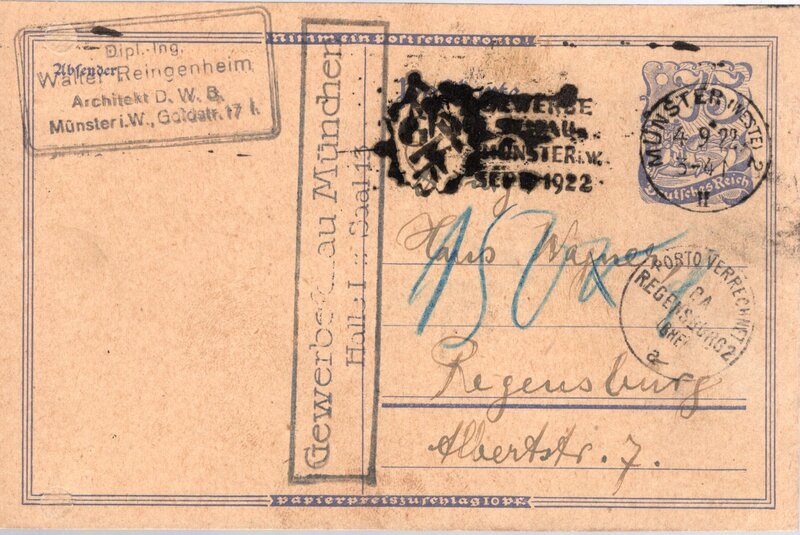 Nimm ein Postscheckkonto!
Absender
Dipl.-Ing.
Walter Reingenheim
Architekt D. W. B.
Münster i. W., Goldstr. 17 I.
GEWERBE
SCHAU
MÜNSTER i.W.
SEPT. 1922
75
Deutsches Reich
MÜNSTER (WESTF.) 2
4. 9. 22
3-4 N
II
Gewerbeschau München
Halle I Saal 13
Hans Wagner
150
PORTO VERRECHNET
C.A.
REGENSBURG 2
a
Regensburg
Albertstr. 7.
Papierpreiszuschlag 10 Pf.